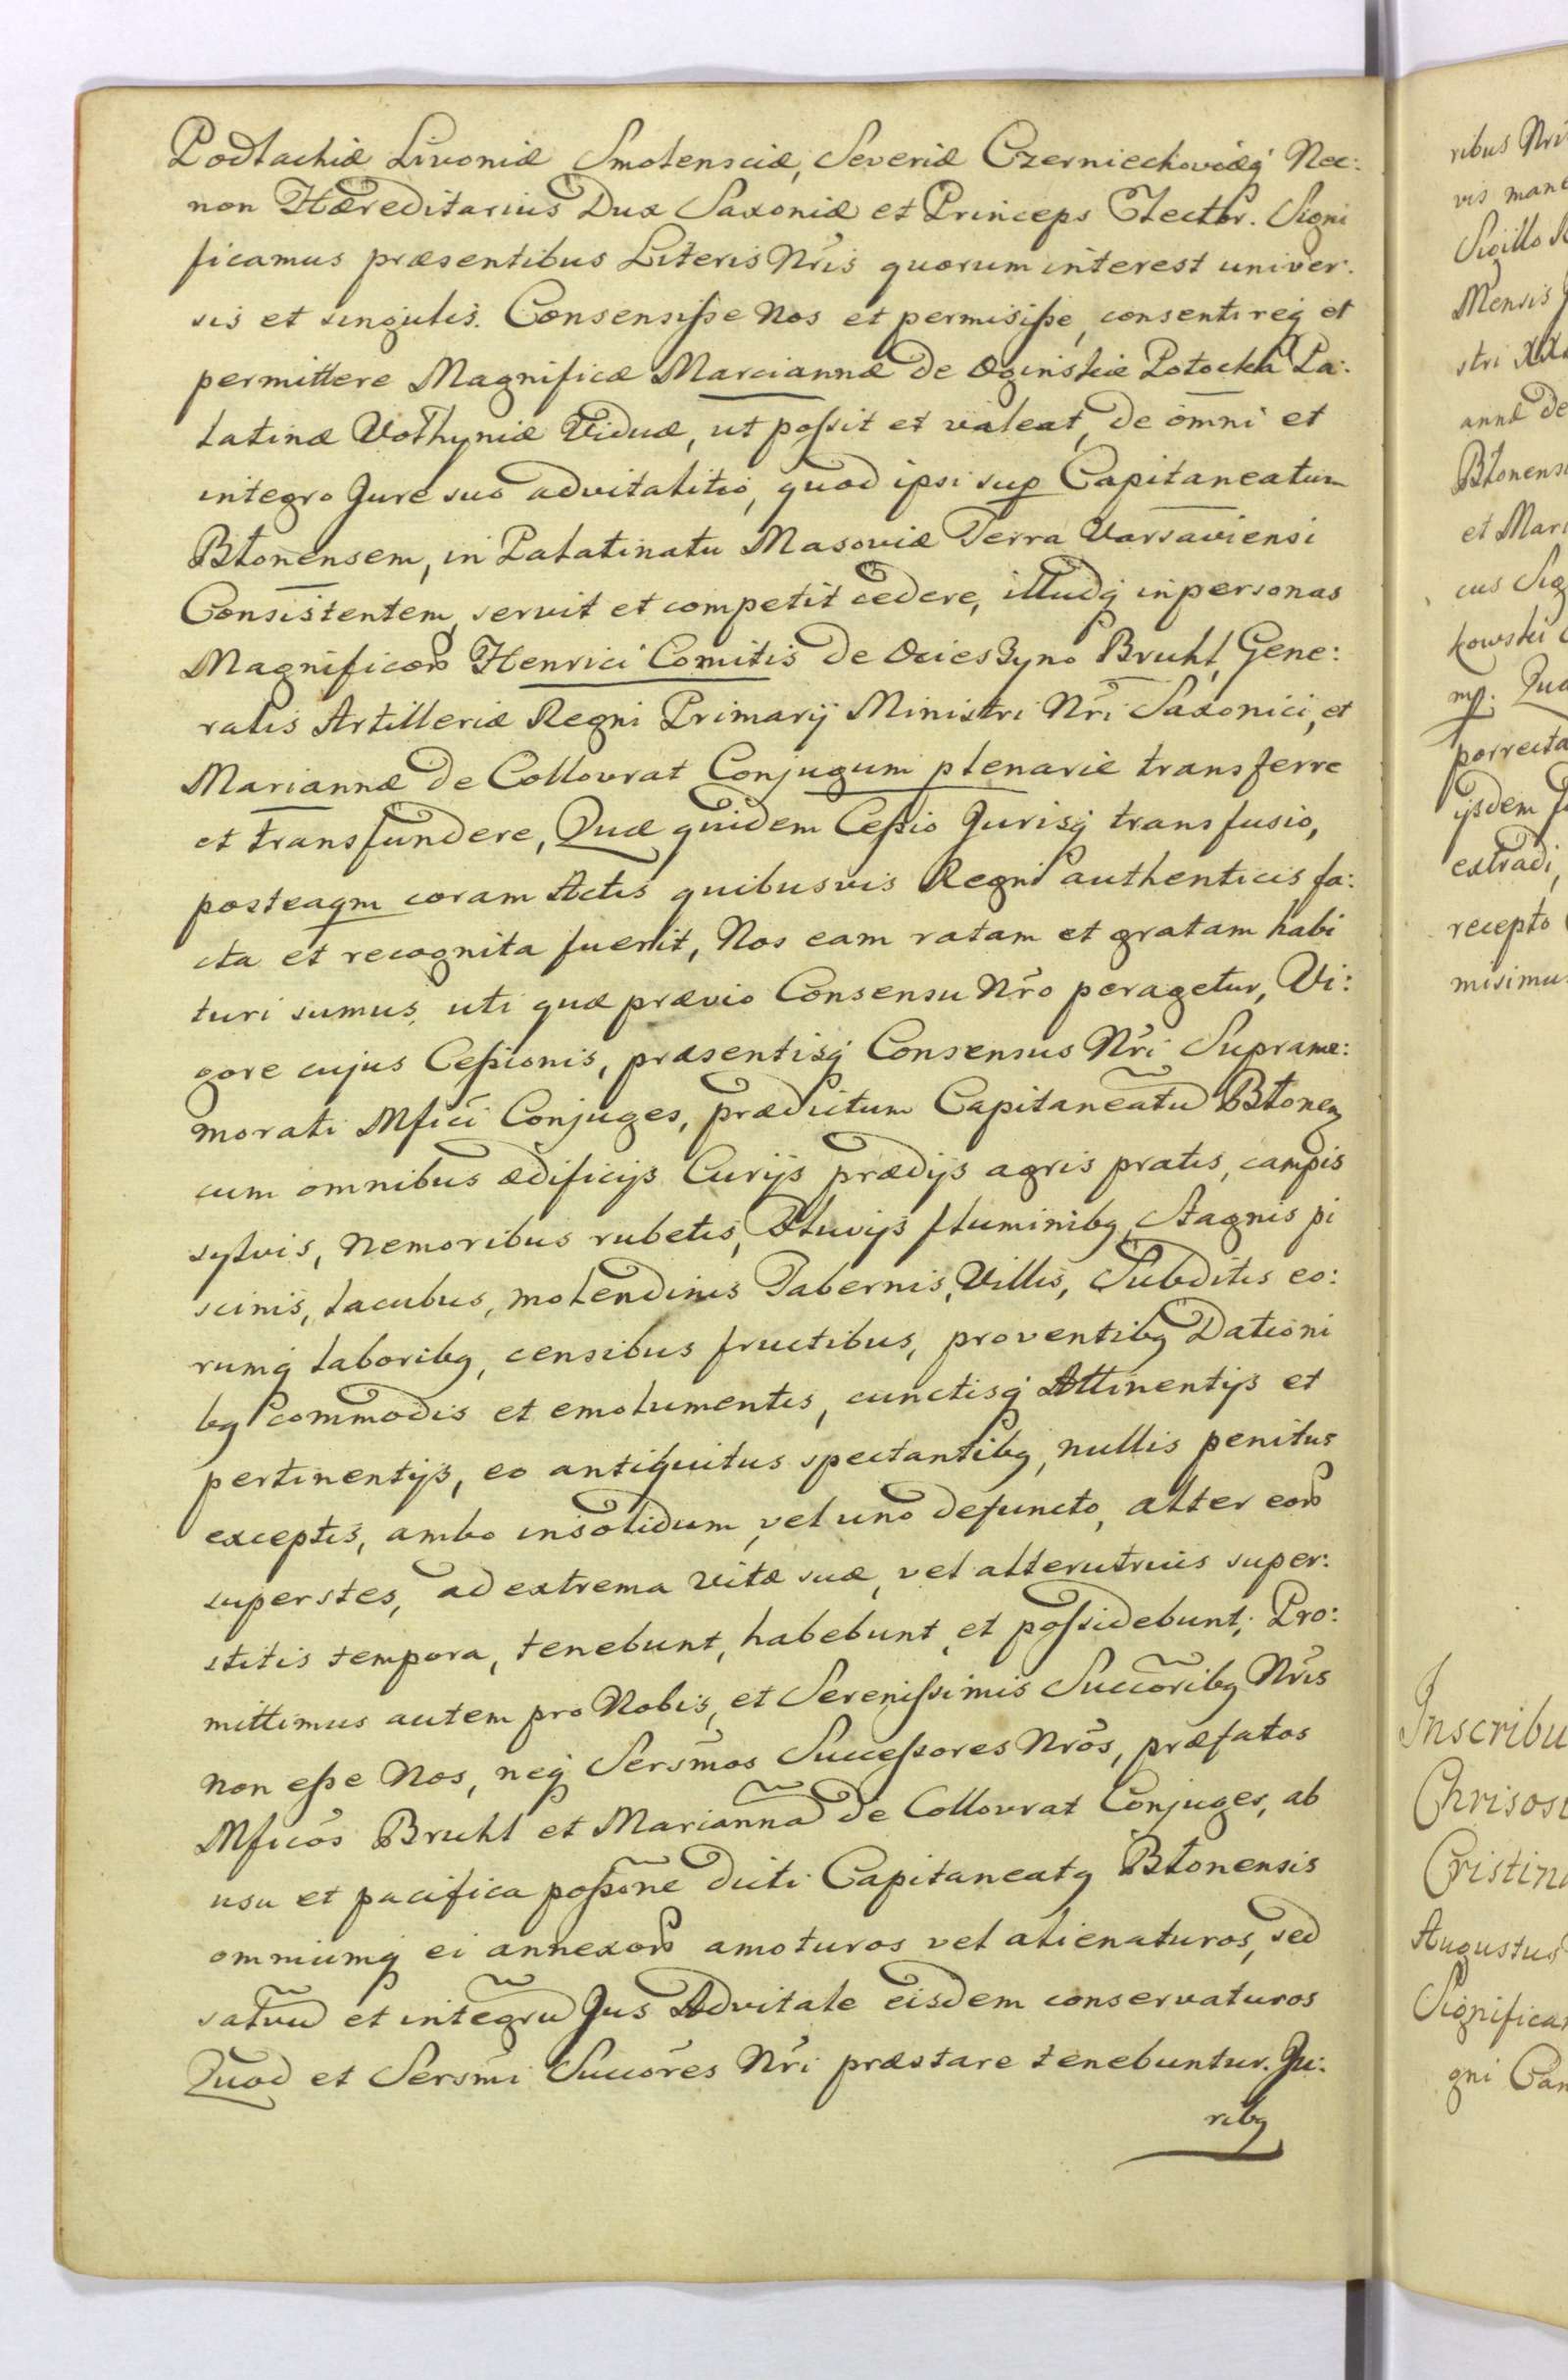 Podlachiæ Livoniæ Smolensciæ, Severiæ Czerniechoviæq́ Nec:
non Hæreditarius Dux Saxoniæ et Princeps Elector. Signi
ficamus præsentibus Literis Nr̃is quorum interest univer:
sis et singulis. Consensiſse Nos et permisiſse, consentireq́ et
permittere Magnificæ Marciannæ de Oginskie Potocka Pa:
latinæ Volhyniæ Viduæ, ut poſsit et valeat, de omni et
integro Jure suo advitalitio, quod ipsi sup Capitaneatum
Błonensem, in Palatinatu Masoviæ Terra Varsaviensi
Consistentem, servit et competit cedere, illudq́ in personas
Magnificor̃ Henrici Comitis de Ocieszyno Bruhl, Gene:
ralis Artilleriæ Regni Primarij Ministri Nr̃i Saxonici, et
Mariannæ de Collovrat Conjugum plenarie transferre
et transfundere, Quæ quidem Ceſsio Jurisq́ transfusio,
posteaqm coram Actis quibusvis Regni authenticis fa:
cta et recognita fuerit, Nos eam ratam et gratam habi
turi sumus, uti quæ prævio Consensu Nr̃o peragetur, Vi:
gore cujus Ceſsionis, præsentisq́ Consensus Nr̃i Suprame:
morati Mfici Conjuges, prædictum Capitaneatũ Błonen̄
cum omnibus ædificijs Curijs prædijs agris pratis, campis
sylvis, nemoribus rubetis, Fluvijs fluminibq, Stagnis pi
scinis, lacubus, molendinis Tabernis, Villis, Subditis eo:
rumq́ laboribq, censibus fructibus, proventibq Dationi
bq commodis et emolumentis, cunctisq́ Attinentijs et
pertinentijs, eo antiquitus spectantibq, nullis penitus
exceptis, ambo insolidum, vel uno defuncto, alter eor̃
superstes, ad extrema vitæ suæ, vel alterutrius super:
stitis tempora, tenebunt, habebunt, et poſsidebunt; Pro:
mittimus autem pro Nobis, et Sereniſsimis Succõribq Nr̃is
non eſse Nos, neq́ Sersm̃os Succeſsores Nr̃os, præfatos
Mficõs Bruhl et Mariannã de Collovrat Conjuges, ab
usu et pacifica poſsõne dicti Capitaneatq Błonensis
omniumq́ ei annexor̃ amoturos vel alienaturos, sed
salvũ et integrũ Jus Advitale eisdem conservaturos
Quod et Sersm̃i Succõres Nr̃i præstare tenebuntur. Ju:
ribq
ribus Nri
vis mane
Sigillo
Mensis
stri
annæ de
Błonens
et Mari
cus Sig
kowski
mp. Qua
porrecta
ijsdem
extradi,
recepto
misimu
Inscribu
Chrisos
Cristina
Augustus
Significa
gni Can